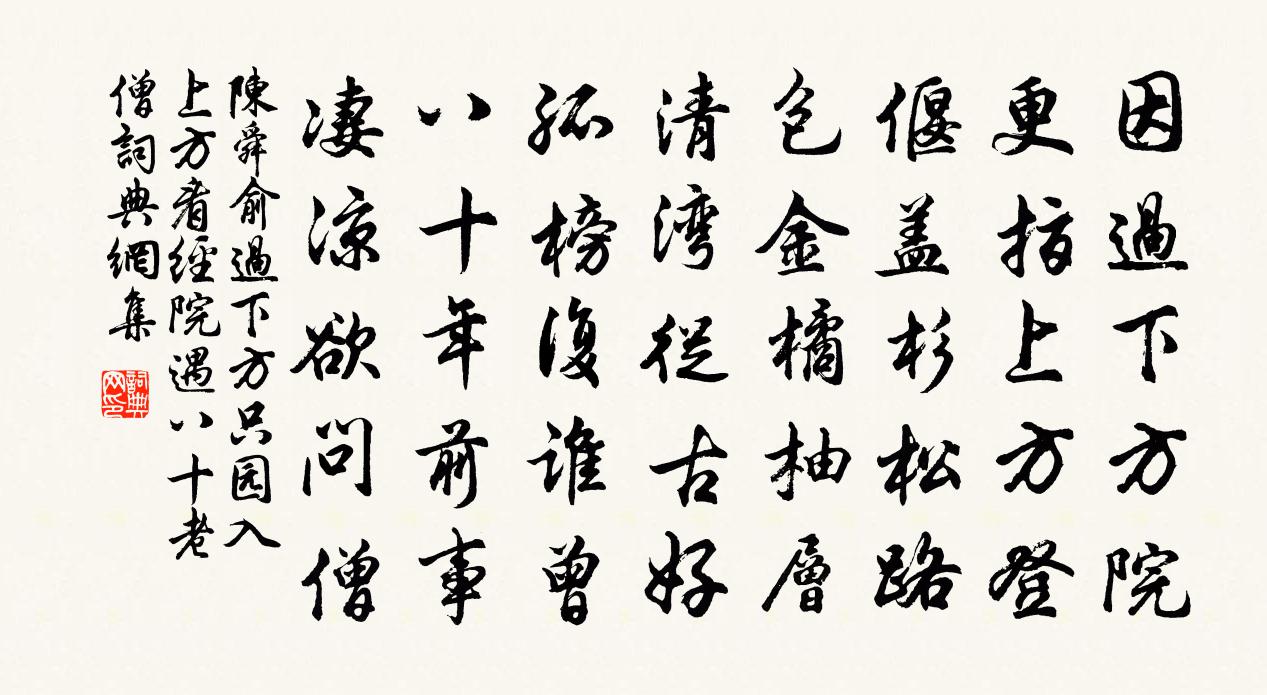 因過下方院
更指上方登
偃盖杉松路
包金橘柚層
清湾從古好
孤榜復誰曾
八十年前事
凄凉欲問僧
陳舜俞過下方只园入
上方看經院遇八十老
僧詞典網集
詞典网印